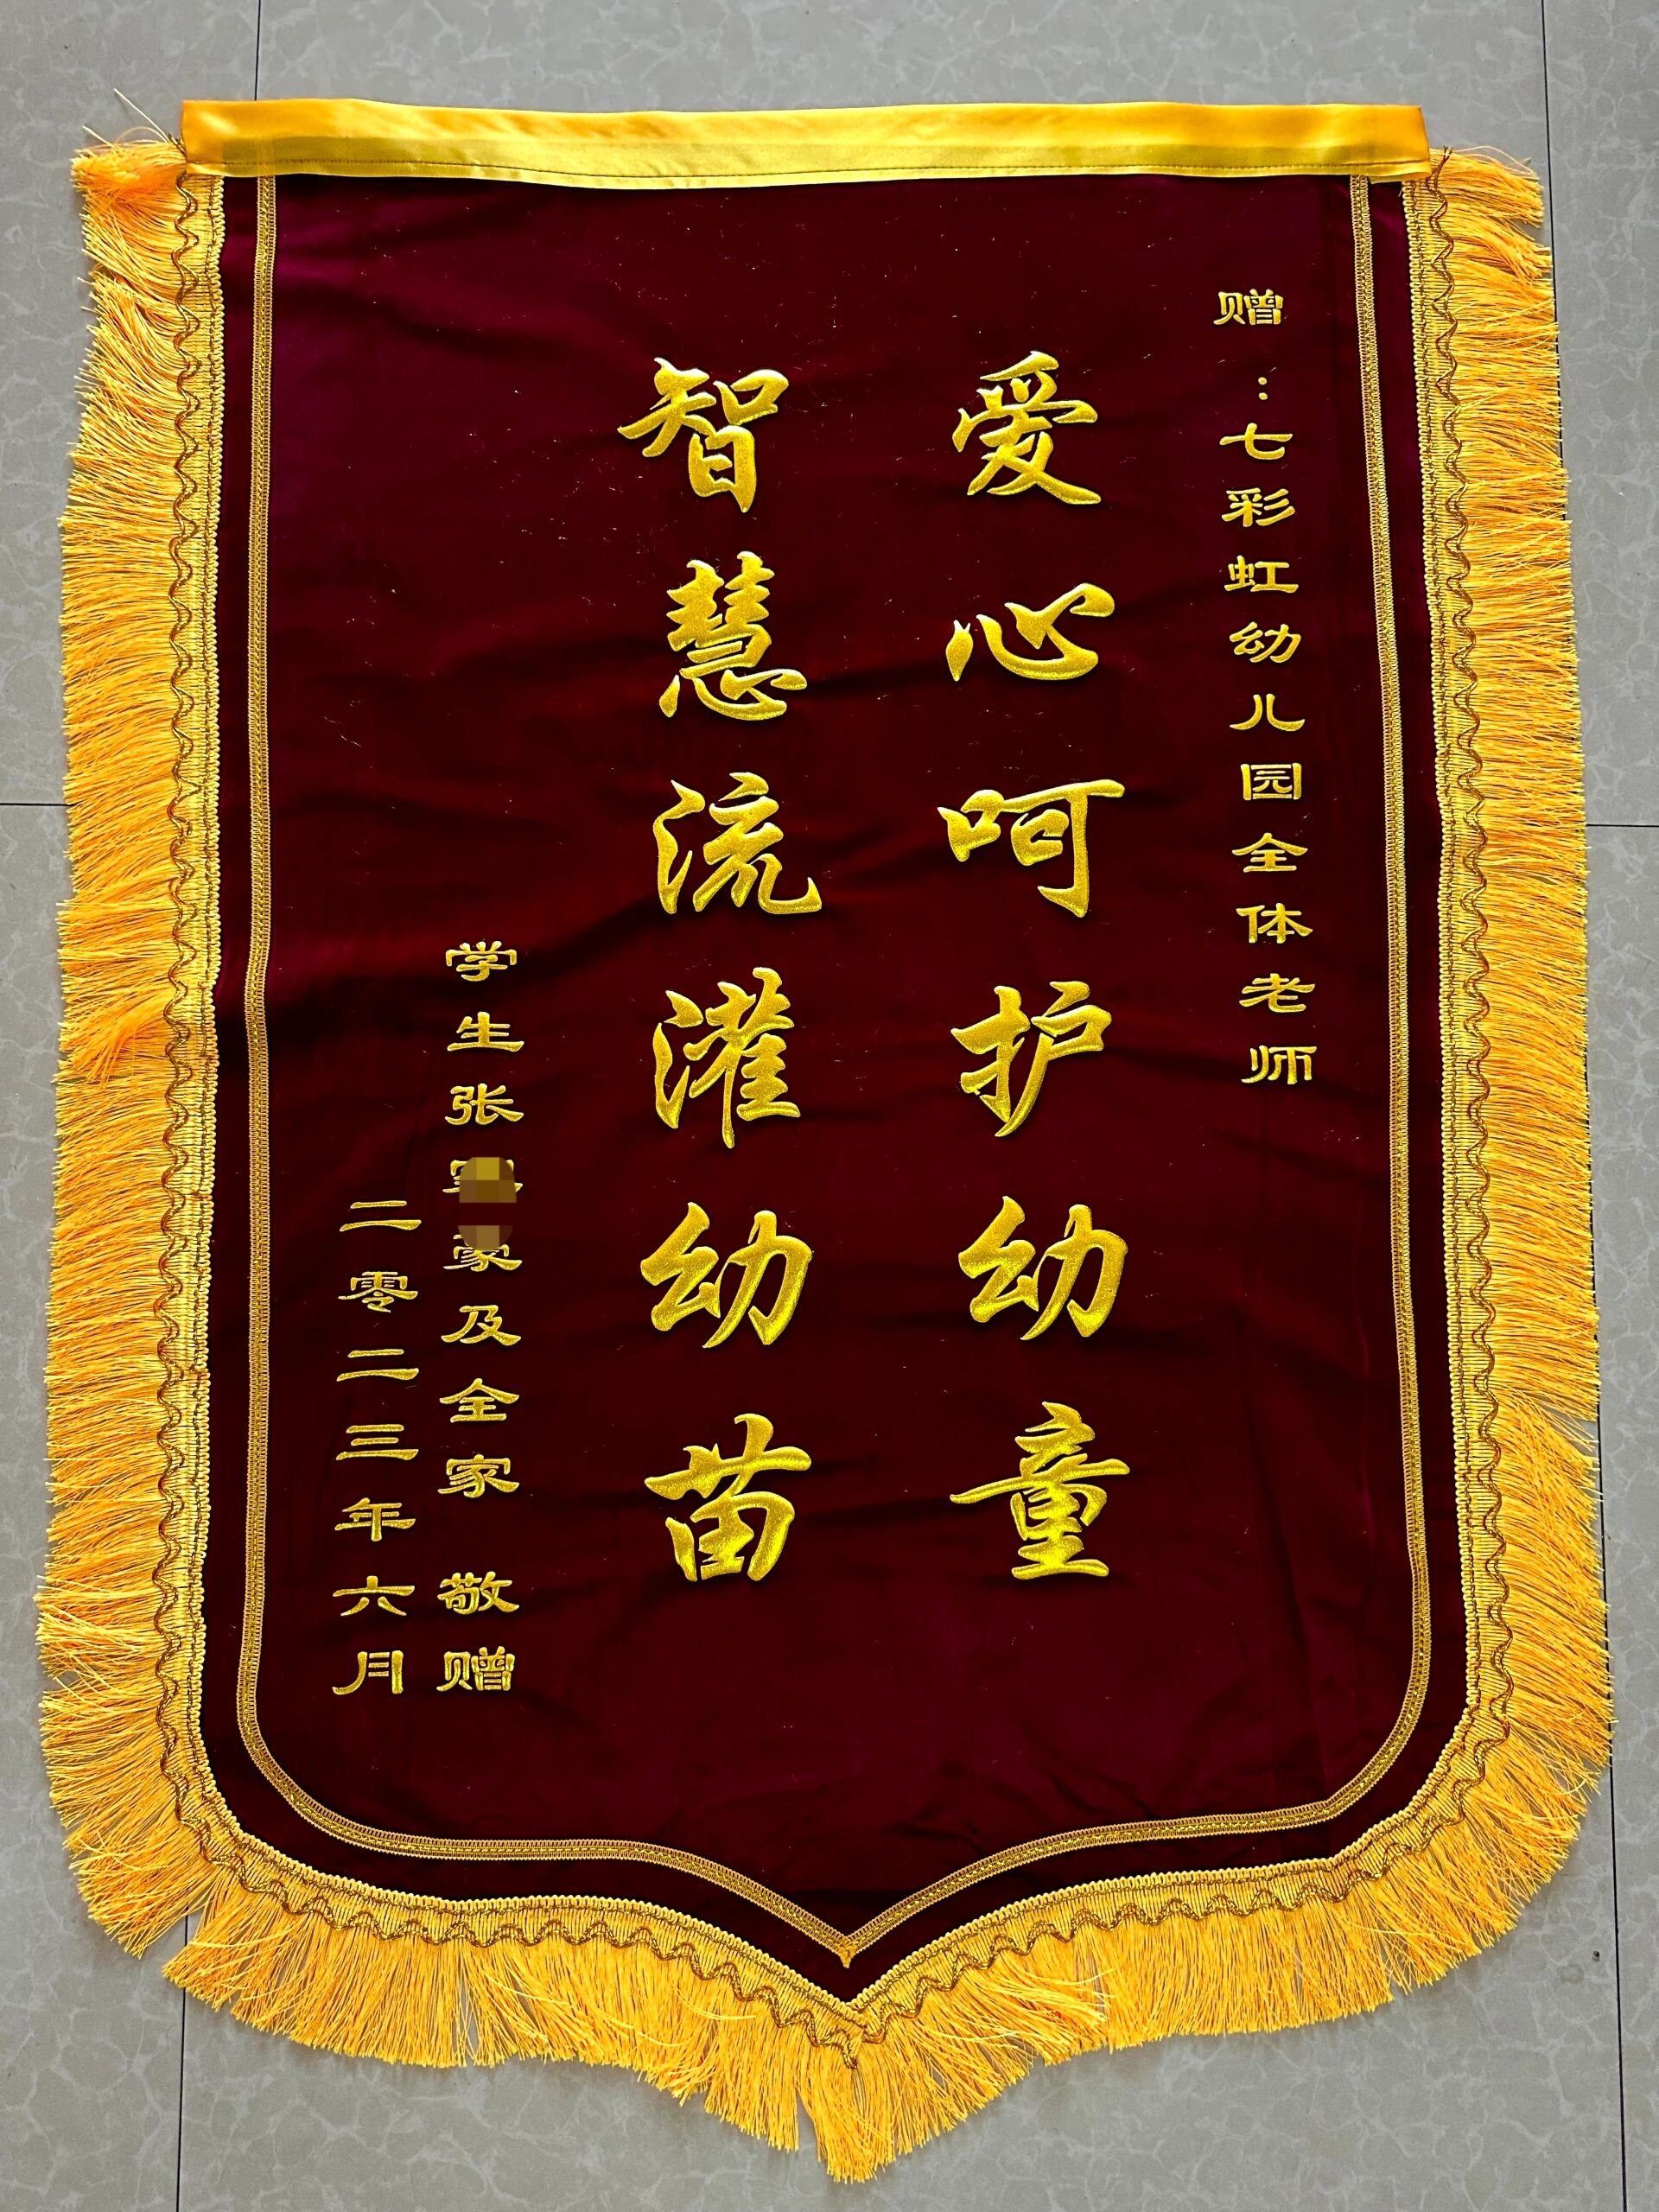 赠：七彩虹幼儿园全体老师
爱心呵护幼童
智慧流灌幼苗
学生张豪及全家 敬赠
二零二三年六月